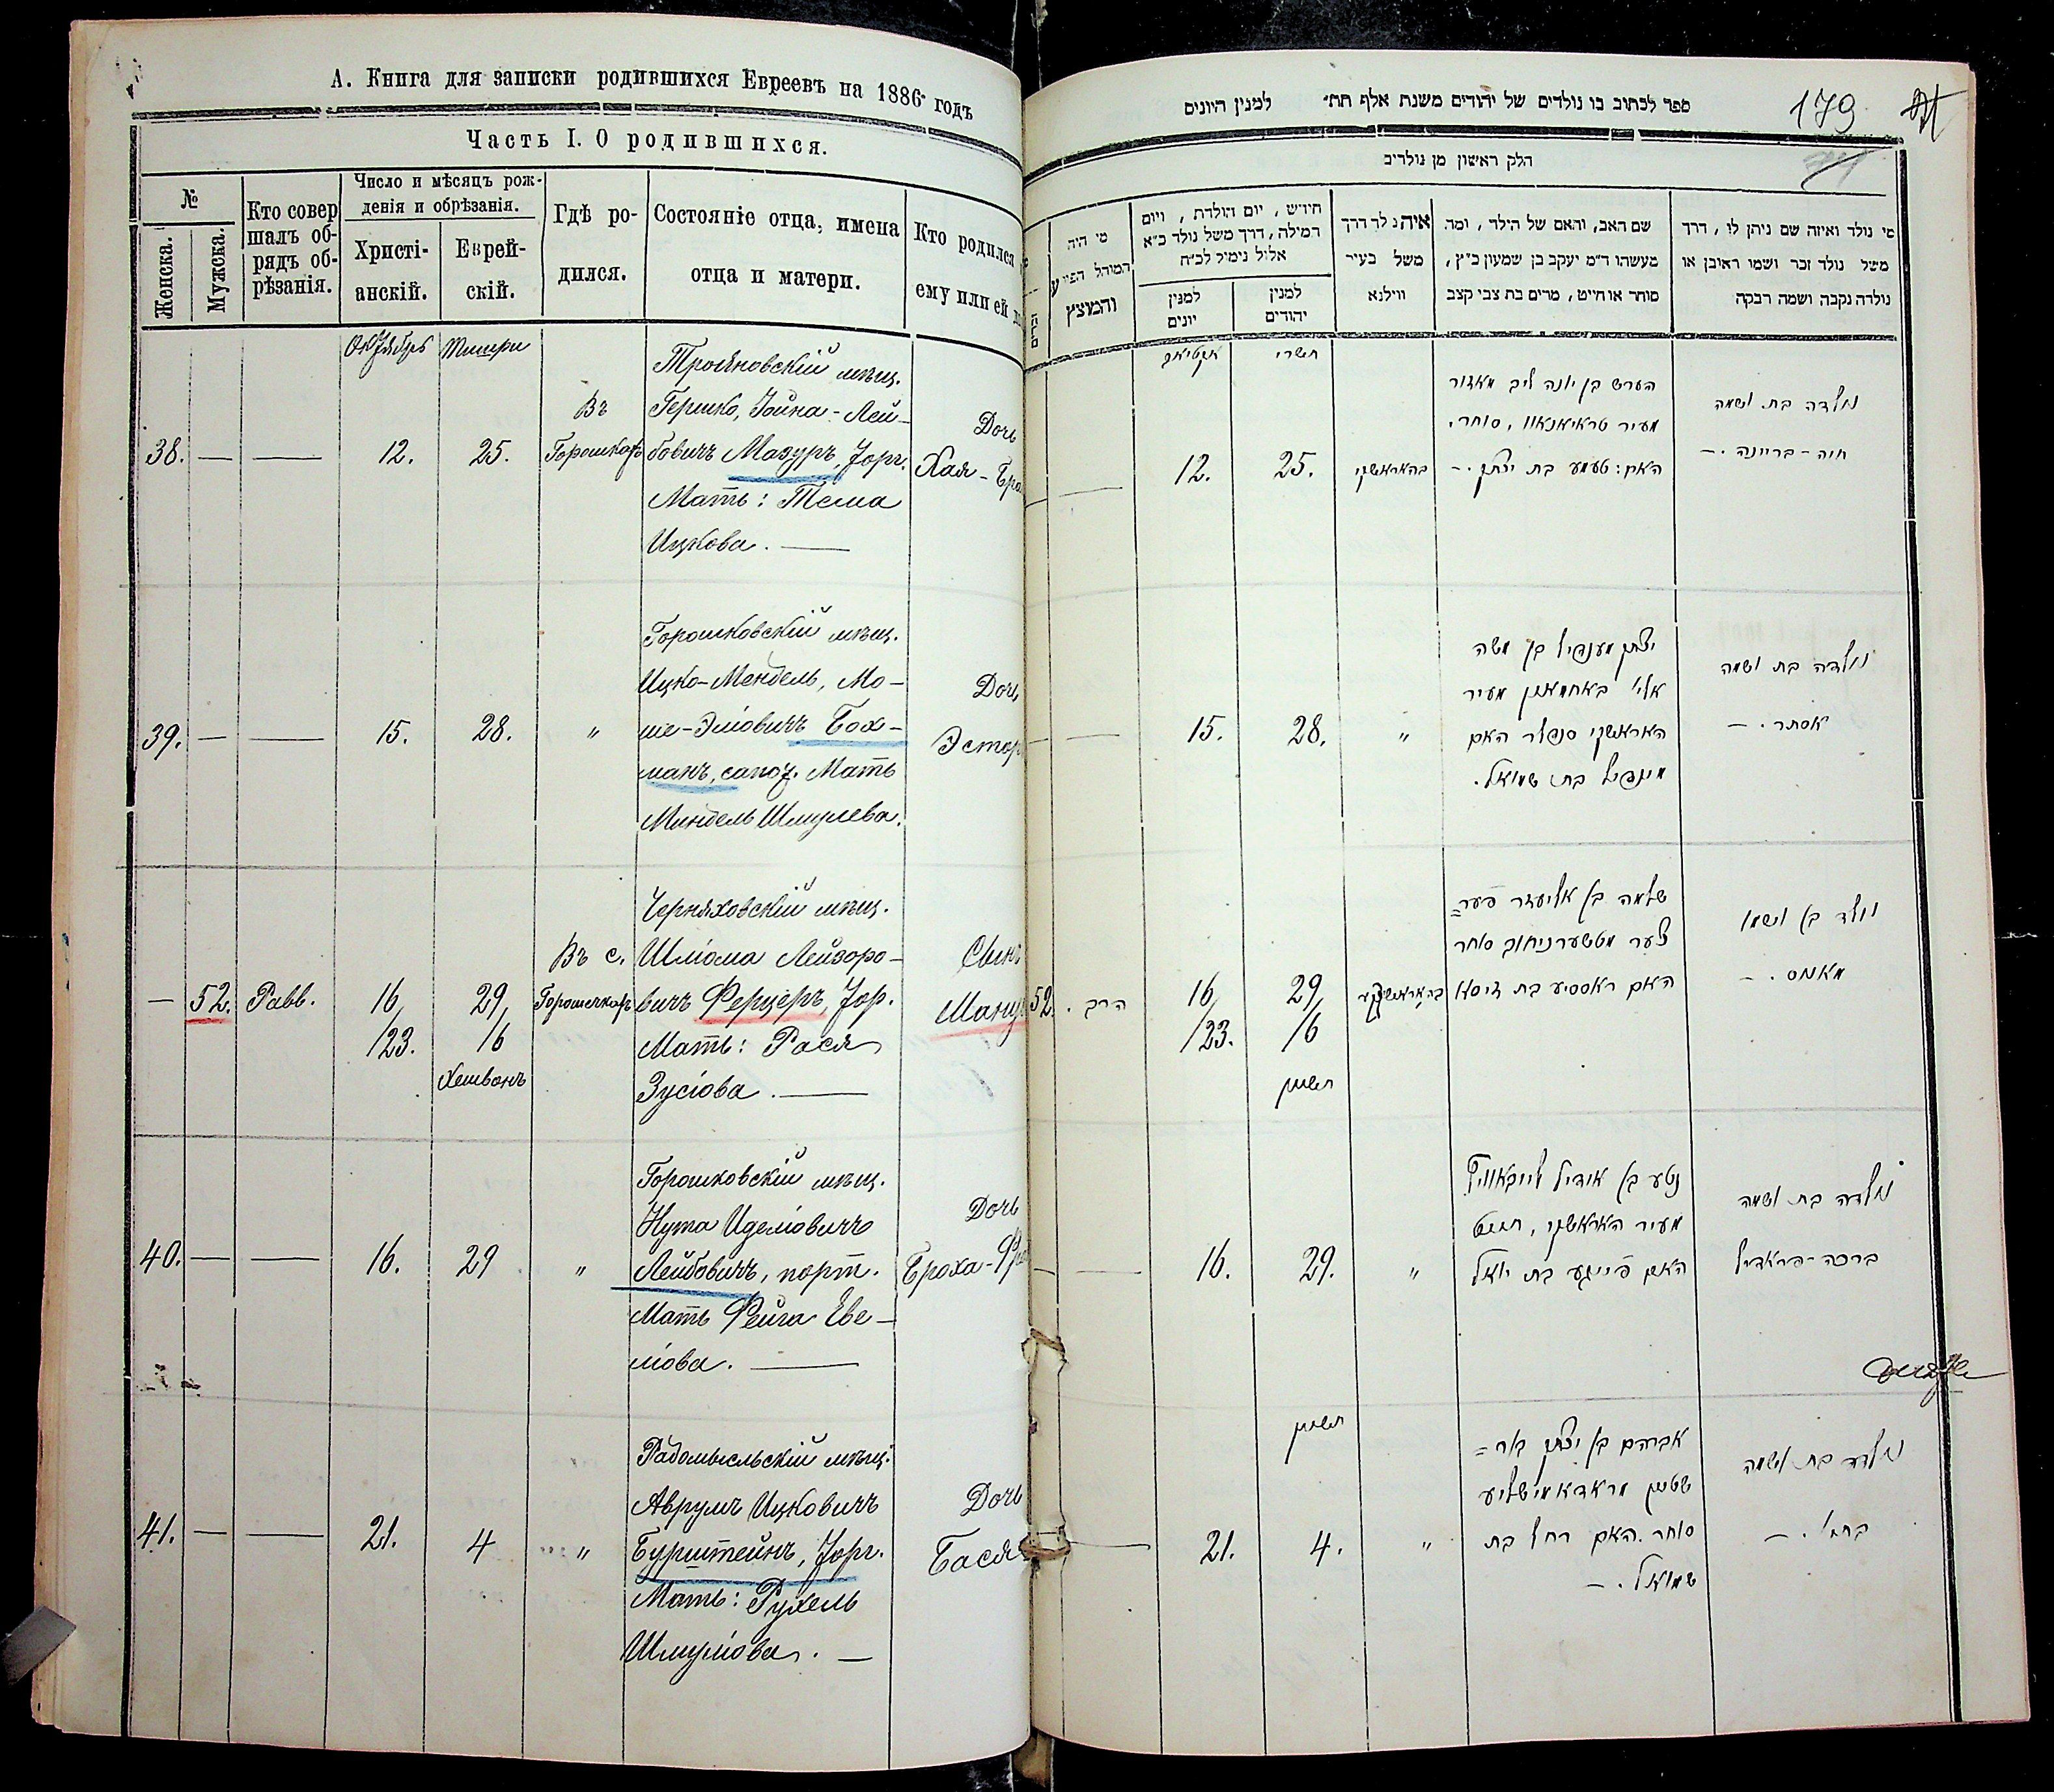 А. Книга для записки родившихся Евреевъ на 1886 годъ
Часть I. О родившихся.
№
Женска.
Мужска.
Кто совер
шалъ об-
рядъ об-
рѣзанія.
Число и мѣсяцъ рож-
денія и обрѣзанія.
Христі-
анскій.
Еврей-
скій.
Гдѣ ро-
дился.
Состояніе отца, имена
отца и матери.
Кто родился
ему или ей
Октябрь Тишри
38. — — 12. 25.
Въ
Горошкахъ
Трояновскій мѣщ.
Гершко, Іойна-Лей-
бовичъ Мазуръ, торг.
Мать: Тема
Ицкова. —
Дочь
Хая-
39. — — 15. 28. "
Горошковскій мѣщ.
Ицко-Мендель, Мо-
ше-Эліовичъ Бох-
манъ, сапож. Мать
Миндель Шмулева.
Дочь
Эстер
— 52. Равв. 16/23. 29/16
Хешвонъ
Въ с.
Горошкахъ
Черняховскій мѣщ.
Шліома Лейзоро-
вичъ Ферцеръ, тор.
Мать: Рася
Зусіова. —
Сынъ
40. — — 16. 29 "
Горошковскій мѣщ.
Нута Иделіовичъ
Лейбовичъ, порт.
Мать Фейга Еве-
ліова. —
Дочь
Броха-
41. — — 21. 4 "
Радомысльскій мѣщ.
Аврумъ Ицковичъ
Бурштейнъ, торг.
Мать: Рухель
Шмуліова. —
Дочь
Бася
179
ספר לכתוב בו נולדים של יהודים משנת אלף תת״ למנין היונים
חלק ראשון מן נולדים
מי היה
המוהל הפורע
והמוצץ
חידש, יום הולדת, ויום
המילה, דרך משל נולד כ״א
אלול נימול לכ״ח
למנין
יונים
למנין
יהודים
איה נולד דרך
משל בעיר
ווילנא
שם האב, והאם של הילד, ומה
מעשהו ד״מ יעקב בן שמעון כ״ץ,
סוחר או חייט, מרים בת צבי קצב
מי נולד ואיזה שם ניתן לו, דרך
משל נולד זכר ושמו ראובן או
נולדה נקבה ושמה רבקה
תשרי
12. 25. בהאראשקי
הערש בן יונה ליב מאזור
מעיר טראיאנאוו, סוחר,
האם: טעמע בת יצחק. –
נולדה בת ושמה
חיה-בריינה. –
15. 28. "
יצחק מענדיל בן משה
אלי' באחמאן מעיר
האראשקי סנדלר האם
מינדיל בת שמואל.
נולדה בת ושמה
אסתר. –
52. הרב. 16/23. 29/16
חשון
שלמה בן אליעזר פער=
צער מטשערניחוב סוחר
האם ראסיע בת זיסא
נולד בן ושמו
מאנוס. –
16. 29. "
נטע בן אידיל לייבאוויץ
מעיר האראשקי, חייט
האם פייגע בת יואל
נולדה בת ושמה
ברכה-פראדיל
חשון
21. 4. "
אברהם בן יצחק בור=
שטיין מראדאמישליע
סוחר. האם רחל בת
שמואל. –
נולדה בת ושמה
בתי'. –